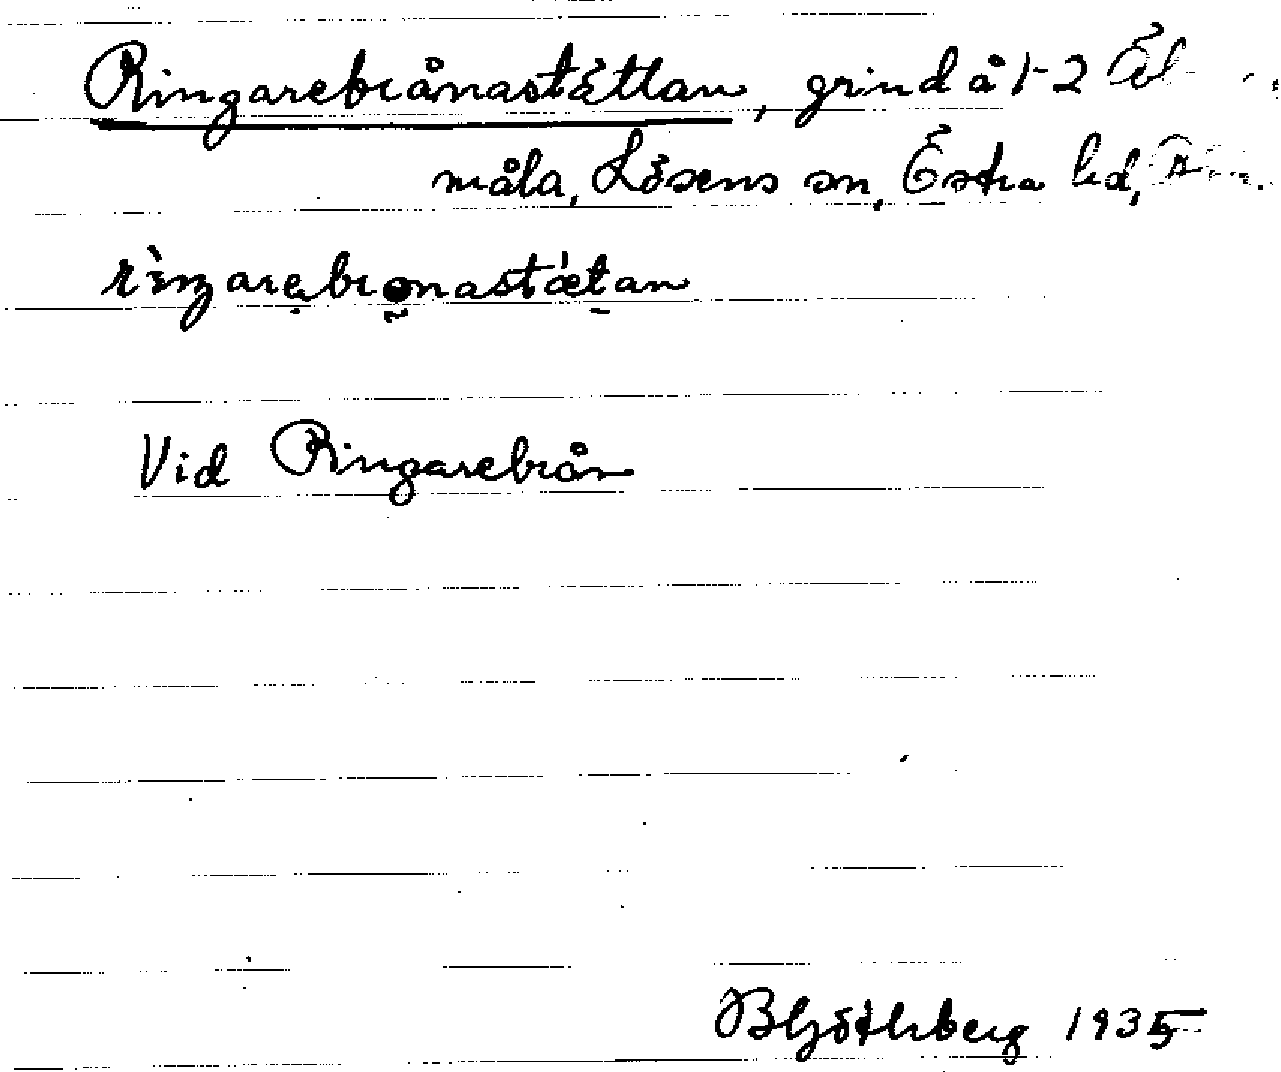 Ringarebrånastättan, grind å 1-2 Äl-
måla, Lösens sn, Östra hd,
ringarebronastætan
Vid Ringarebrån
B Hjöthberg 1935